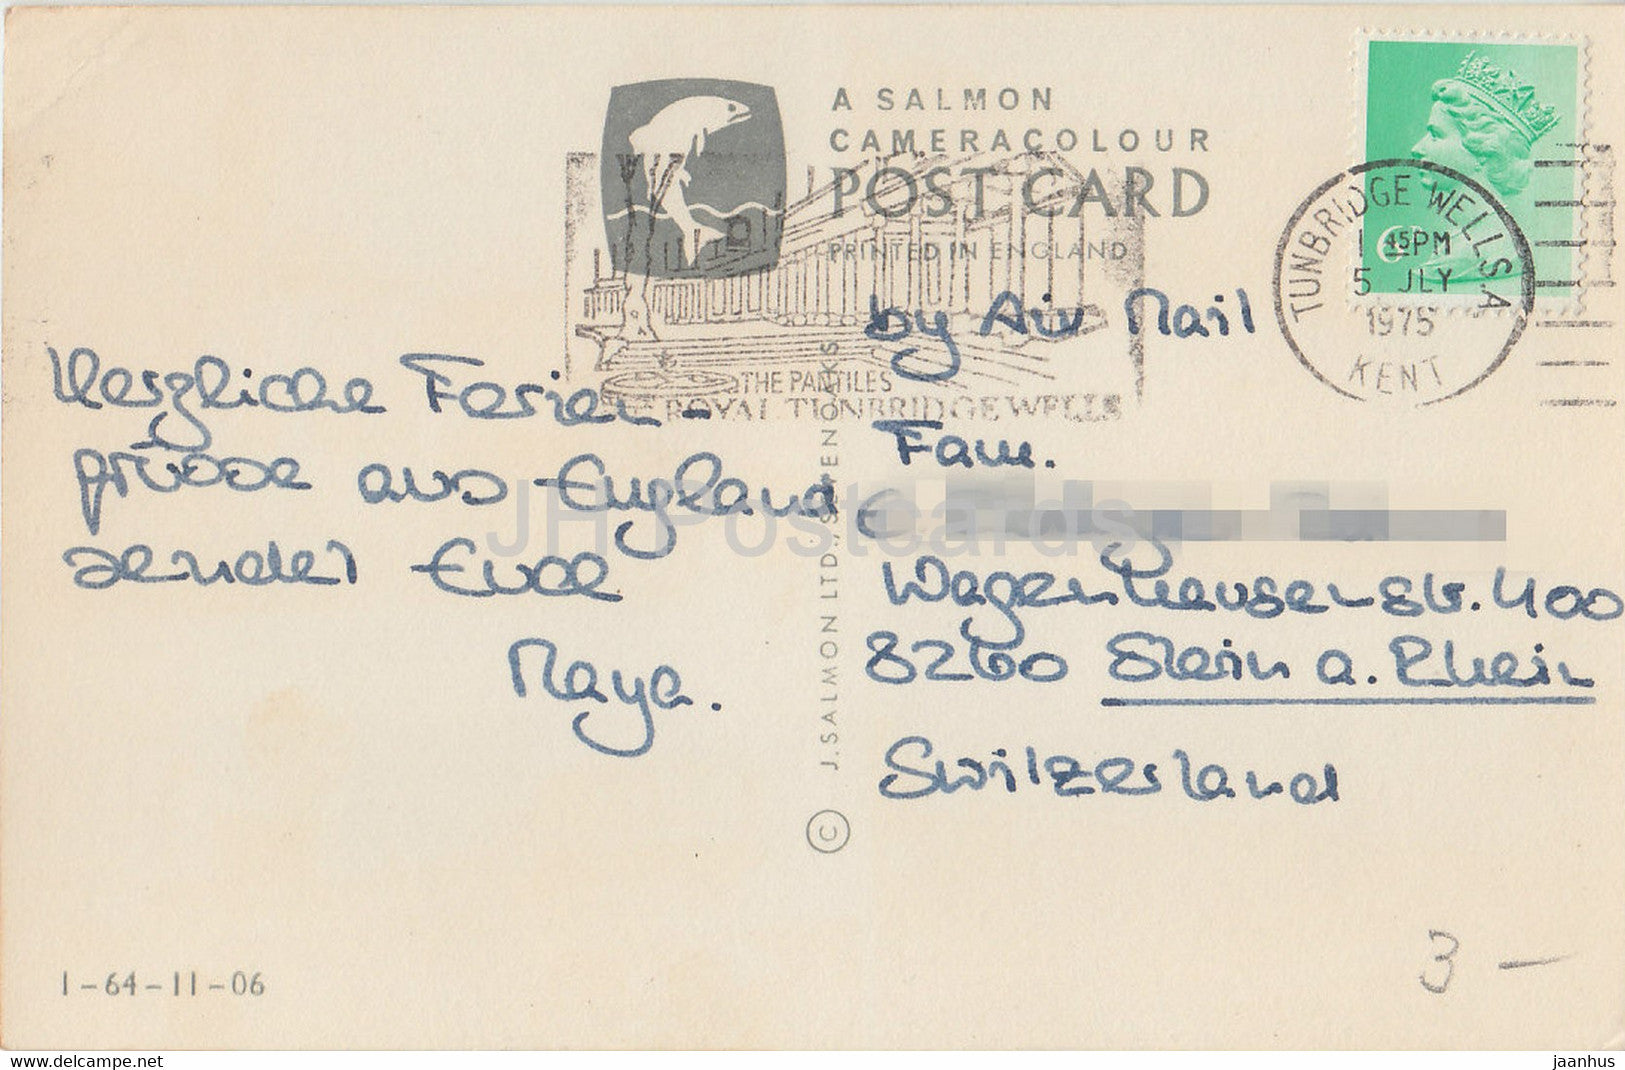 A SALMON
CAMERACOLOUR
POST CARD
PRINTED IN ENGLAND
THE PANTILES
ROYAL TUNBRIDGE WELLS
TUNBRIDGE WELLS. A
1 45PM
5 JLY
1975
KENT
Herzliche Ferien-
grüsse aus England
sendet Euch
Maya.
by Air Mail
Fam.
Wagenhauserstr. 400
8260 Stein a. Rhein
Switzerland
© J. SALMON LTD., SEVENOAKS
1-64-11-06
3 —
JH Postcards
delcampe.net
jaanhus